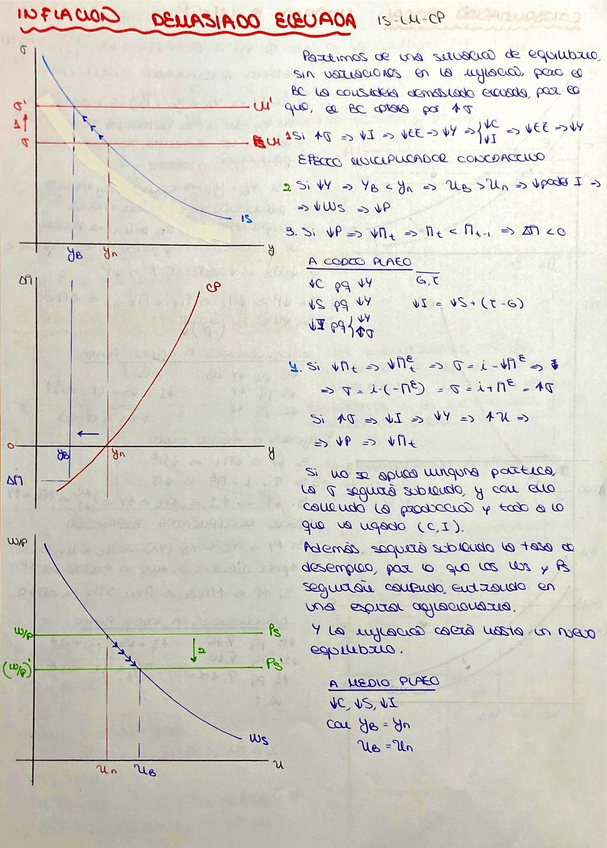 INFLACION DEMASIADO ELEVADA IS-LM-CP
Partimos de una situación de equilibrio,
sin variaciones en la inflación, pero el
BC la considera demasiado elevada, por lo
que, el BC optará por ↑r
1 Si ↑r ⇒ ↓I ⇒ ↓EE ⇒ ↓Y ⇒ {↓C ↓I ⇒ ↓EE ⇒ ↓Y
EFECTO MULTIPLICADOR CONTRACTIVO
2 Si ↓Y ⇒ YB < Yn ⇒ UB > Un ⇒ ↓poder I ⇒
⇒ ↓Ws ⇒ ↓P
3. Si ↓P ⇒ ↓Πt ⇒ Πt < Πt-1 ⇒ ΔΠ < 0
A CORTO PLAZO
G,T
↓C pq ↓Y
↓S pq ↓Y
↓I = ↓S + (T-G)
↓I pq {↓Y ↑r
4. Si ↓Πt ⇒ ↓Πᴱt ⇒ r = i - ↓Πᴱ ⇒
⇒ r = i-(-Πᴱ) = r = i+Πᴱ = ↑r
Si ↑r ⇒ ↓I ⇒ ↓Y ⇒ ↑U ⇒
⇒ ↓P ⇒ ↓Πt
Si no se aplica ninguna política,
la r seguirá subiendo, y con ello
cayendo la producción y todo a lo
que va ligado (C, I).
Además, seguirá subiendo la tasa de
desempleo, por lo que los Ws y Ps
seguirán cayendo, entrando en
una espiral
Y la inflación caerá hasta un nuevo
equilibrio.
A MEDIO PLAZO
↓C, ↓S, ↓I
con YB = Yn
UB = Un
r
r'
1↑
r
LM'
LM
IS
YB
Yn
Y
ΔΠ
CP
0
YB
Yn
Y
ΔΠ
W/P
W/P
PS
2
(W/P)'
PS'
WS
Un
UB
U